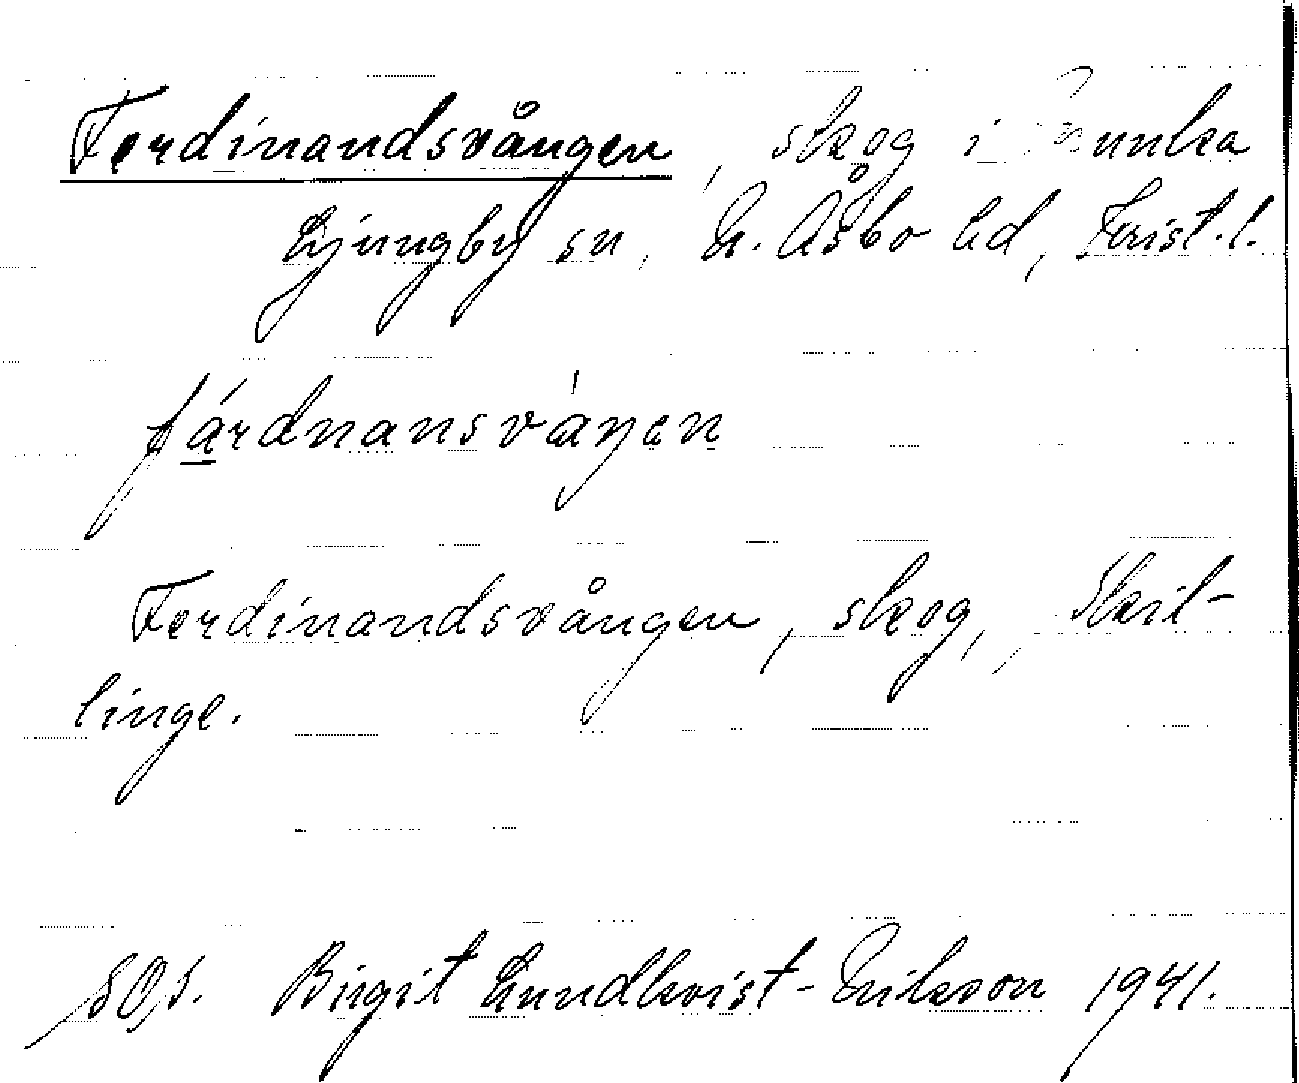 Ferdinandsvången, skog i Munka
Ljungby sn, N. Åsbo hd, Krist. l.
fárdnansváŋen
Ferdinandsvången, skog, Skil-
linge.
Birgit Lundkvist-Erikson 1941.